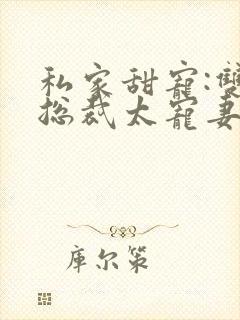 私家甜寵:雙
總裁太寵妻
庫尔策